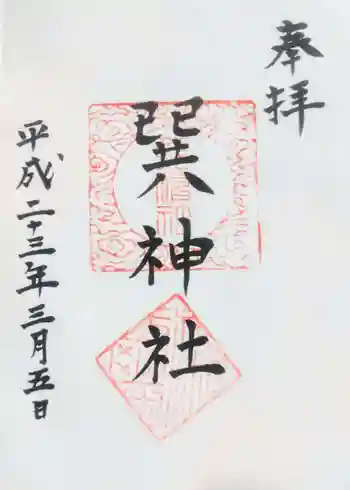 奉拝
巽神社
平成二十三年三月五日